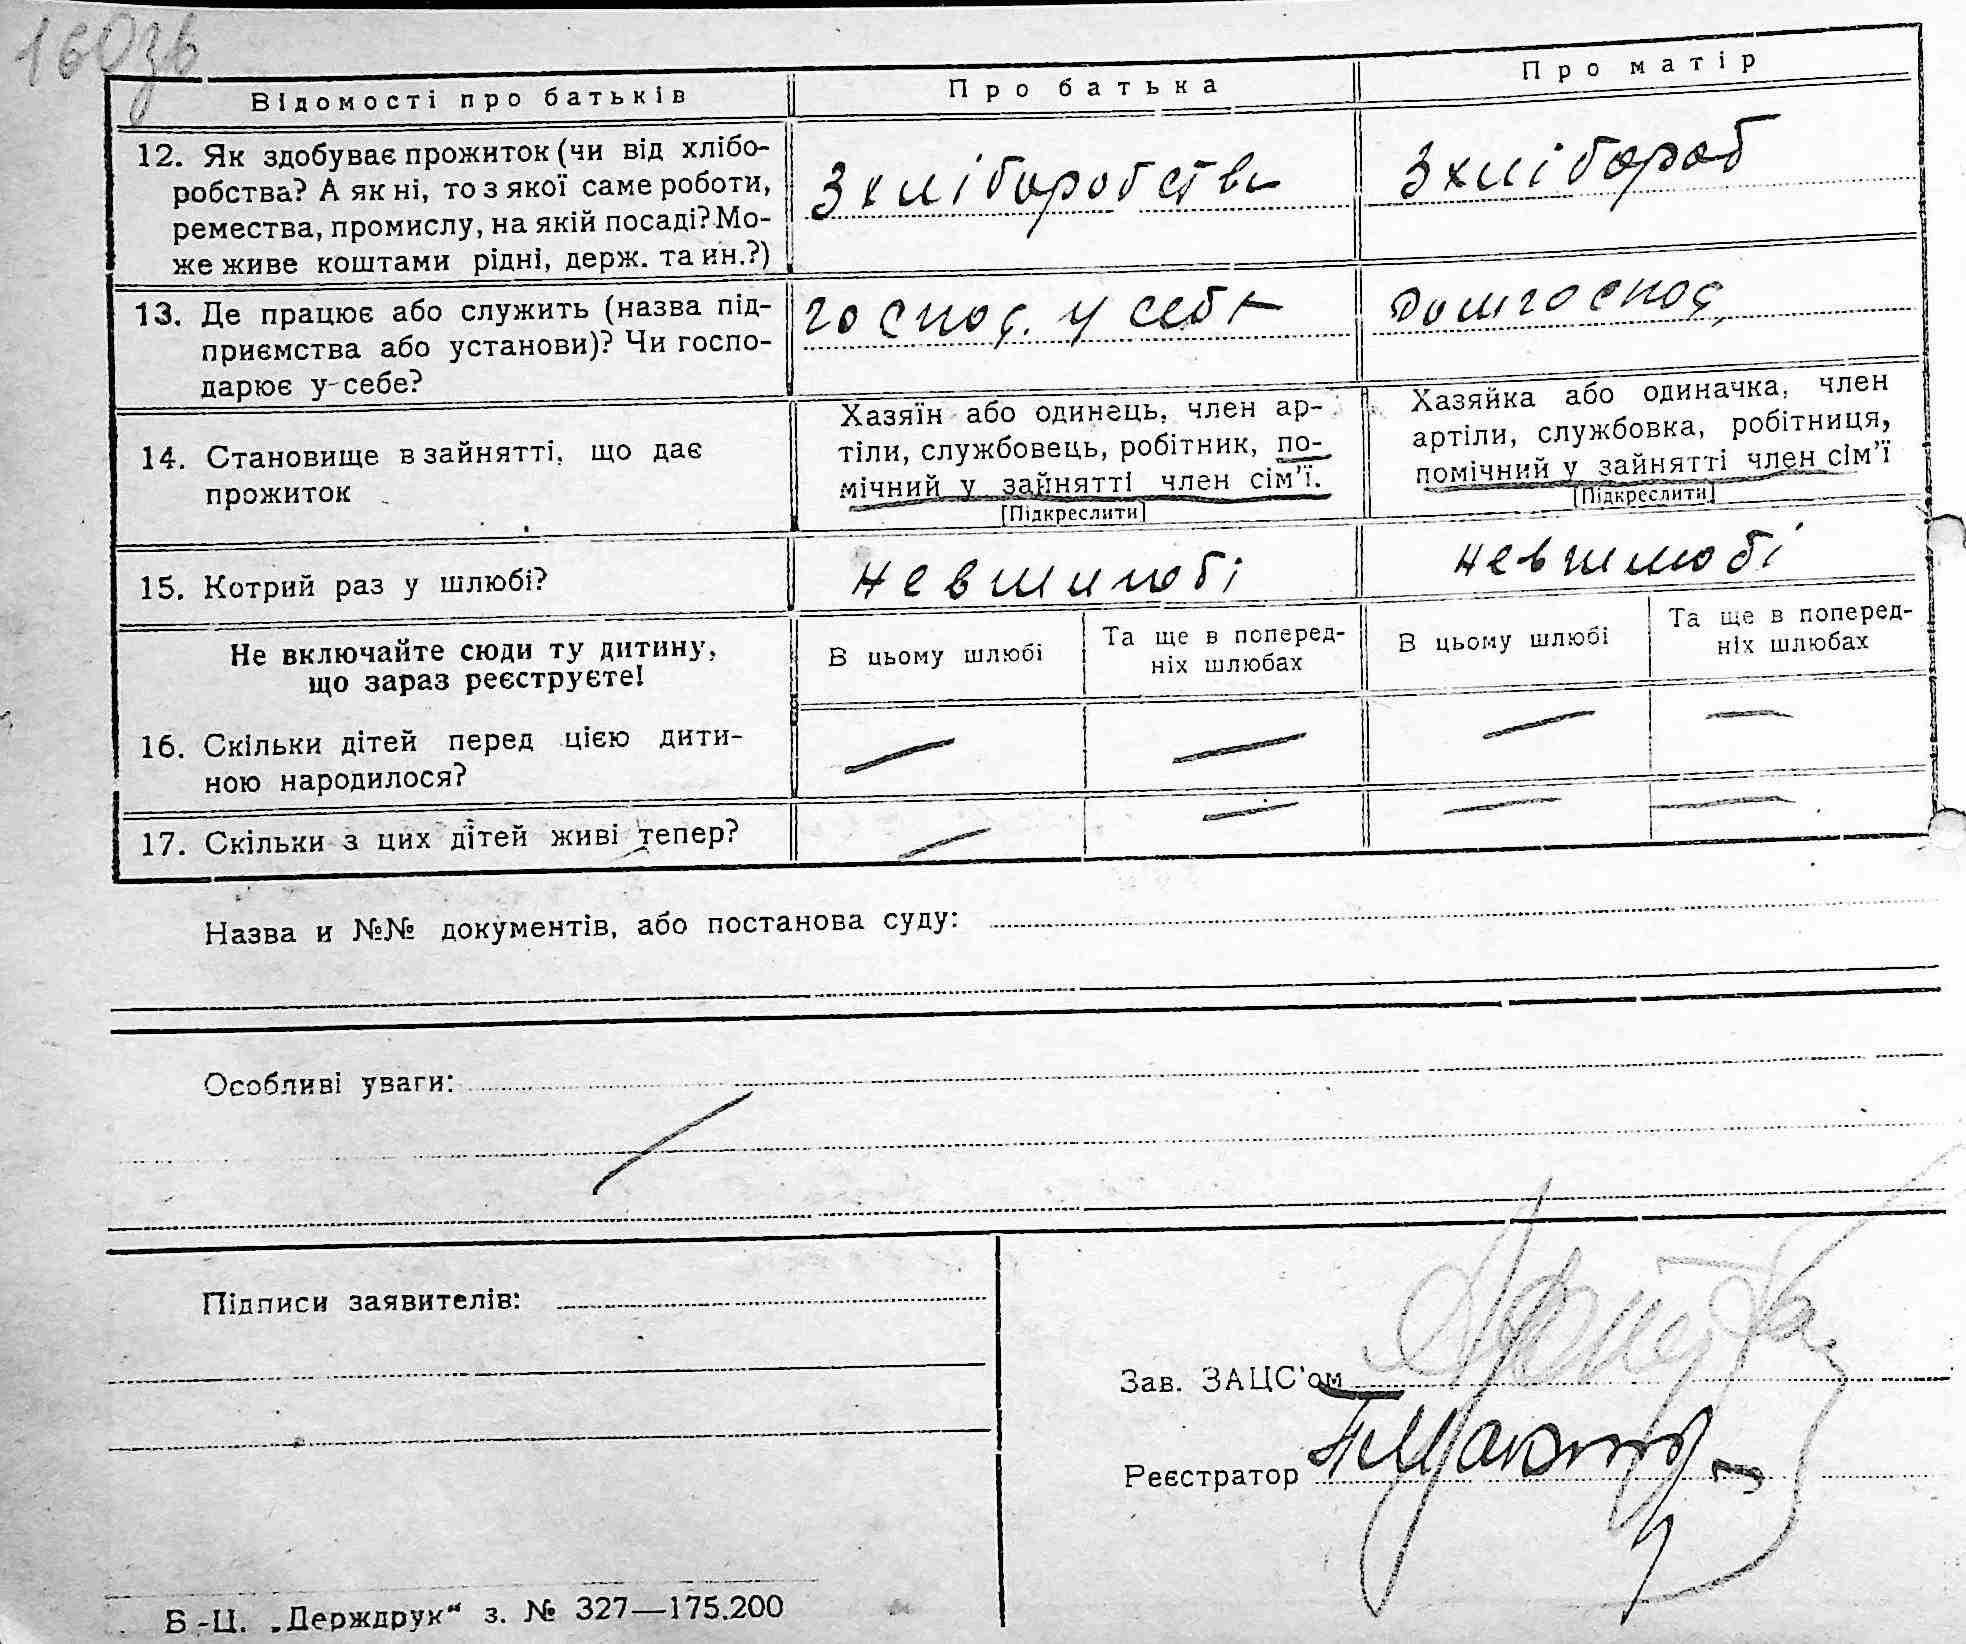 160зв
Відомості про батьків
Про батька
Про матір
12. Як здобуває прожиток (чи від хлібо-
робства? А як ні, то з якої саме роботи,
ремества, промислу, на якій посаді? Мо-
же живе коштами рідні, держ. та ин.?)
З хліборобства
З хлібороб
13. Де працює або служить (назва під-
приємства або установи)? Чи госпо-
дарює у-себе?
господ. у себе
домгоспод,
14. Становище в зайнятті, що дає
прожиток
Хазяїн або одинець, член ар-
тіли, службовець, робітник, по-
мічний у зайнятті член сім'ї.
[Підкреслити]
Хазяйка або одиначка, член
артіли, службовка, робітниця,
помічний у зайнятті член сім'ї
[Підкреслити]
15. Котрий раз у шлюбі?
не в шлюбі
не в шлюбі
Не включайте сюди ту дитину,
що зараз реєструєте!
В цьому шлюбі
Та ще в поперед-
ніх шлюбах
В цьому шлюбі
Та ще в поперед-
ніх шлюбах
16. Скільки дітей перед цією дити-
ною народилося?
— — — —
17. Скільки з цих дітей живі тепер?
— — — —
Назва и №№ документів, або постанова суду:
Особливі уваги:
Підписи заявителів:
Зав. ЗАЦС'ом
Реєстратор
Б-Ц. „Держдрук“ з. № 327—175.200